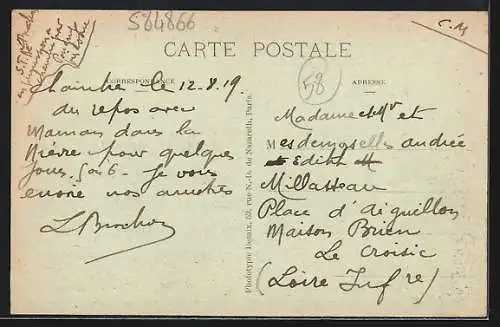 584866
C.M
CARTE POSTALE
58
CORRESPONDANCE
ADRESSE
Chambre le 12-8.19.
du repos avec
Maman dans la
Nièvre pour quelques
jours. 5 à 6 - je vous
envoie nos amitiés
L Brochon
Phototypie Desaix, 63, rue N.-D. de Nazareth, Paris.
Madame et Mr et
Mesdemoselles andrée
Edith
Millasseau
Place d'aiguillon
Maison Brien
Le Croisic
(Loire Infre)